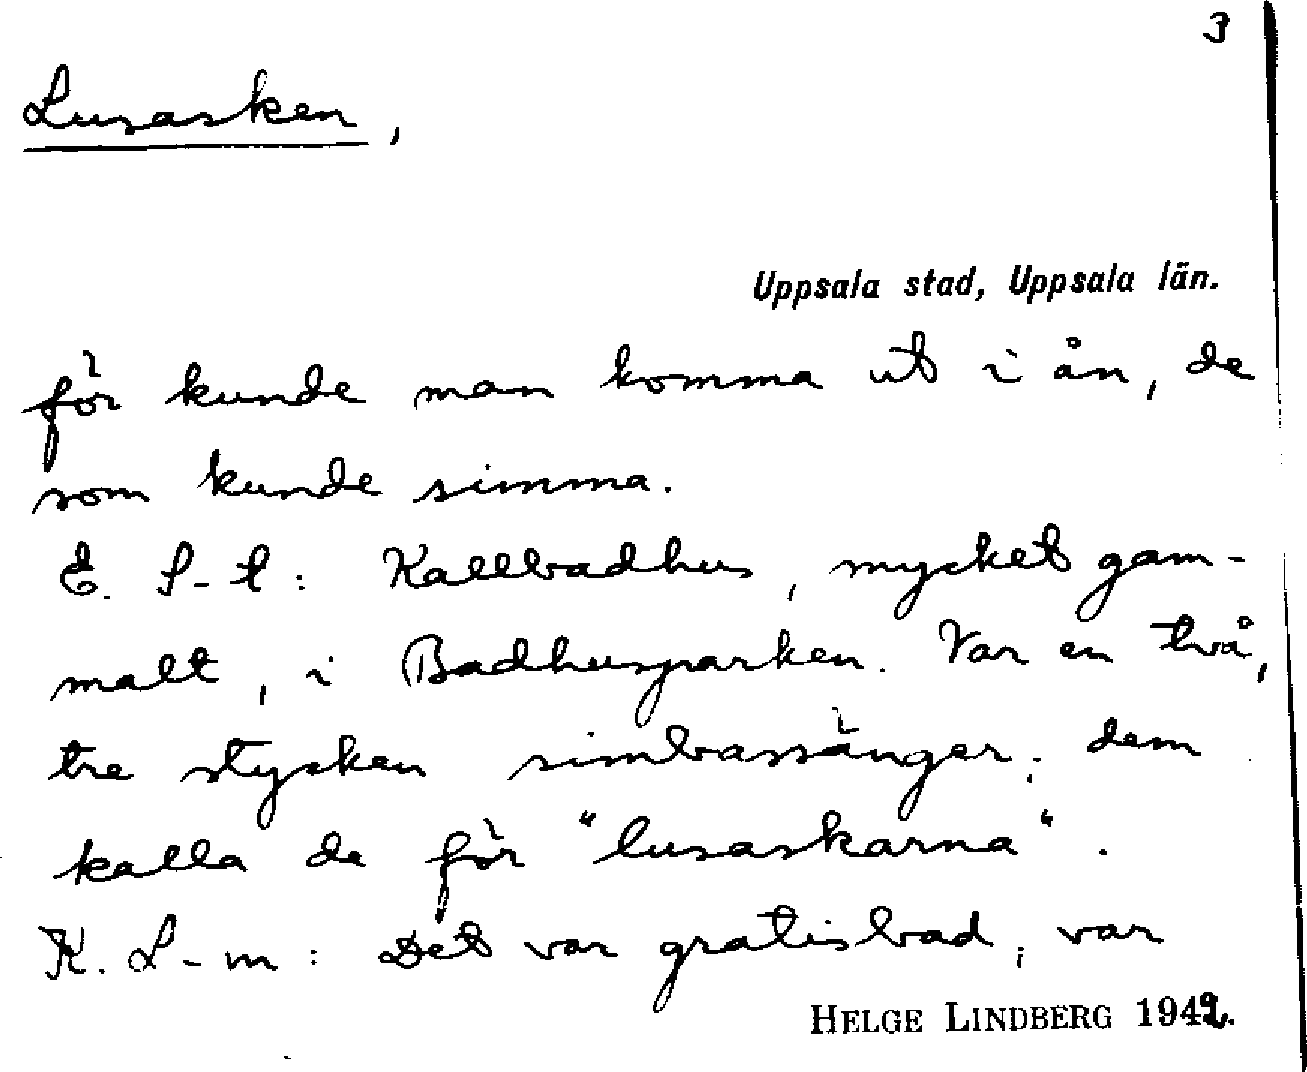 3
Lusasken,
Uppsala stad, Uppsala län.
för kunde man komma ut i ån, de
som kunde simma.
E. S-t: Kallbadhus, mycket gam-
malt, i Badhusparken. Var en två,
tre stycken simbassänger; dem
kalla de för "lusaskarna".
K. L-m: Det var gratisbad; var
HELGE LINDBERG 1942.